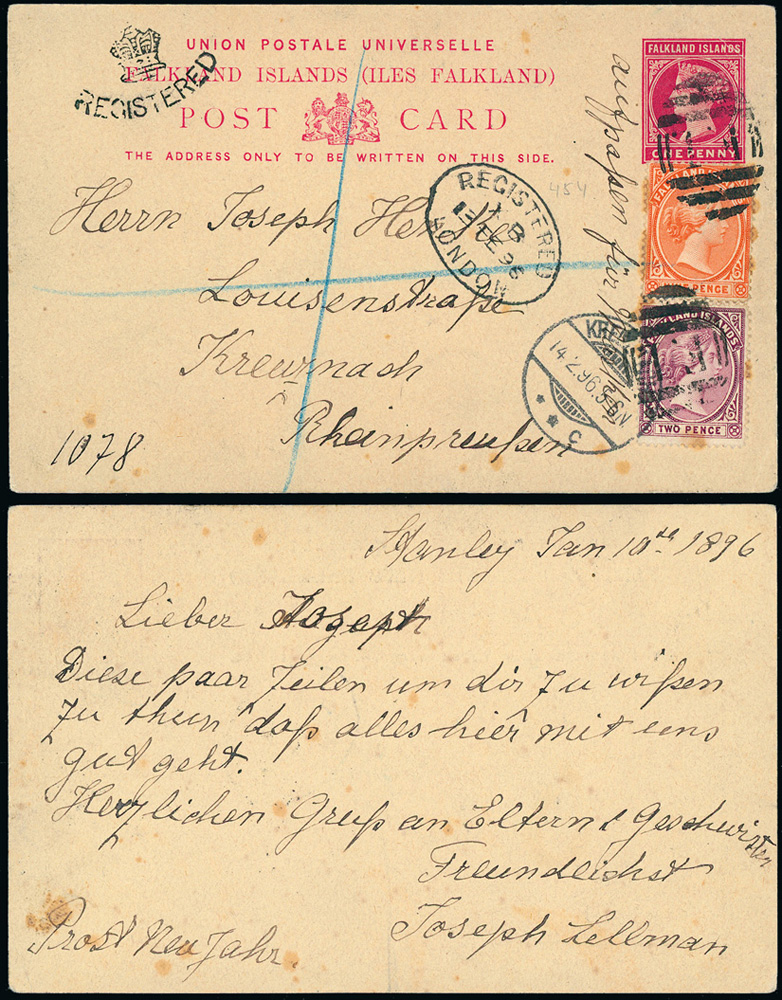 UNION POSTALE UNIVERSELLE
FALKLAND ISLANDS (ILES FALKLAND)
POST CARD
THE ADDRESS ONLY TO BE WRITTEN ON THIS SIDE.
REGISTERED
FALKLAND ISLANDS
ONE PENNY
PENCE
TWO PENCE
REGISTERED
LONDON
454
14.2.96
C
aufpaßen für
Herrn Joseph
Louisenstraße
Kreuznach
Rheinpreußen
1078
Stanley Jan 10th 1896
Lieber Joseph
Diese paar Zeilen um dir zu wißen
zu thun daß alles hier mit uns
gut geht.
Herzlichen Gruß an Eltern & Geschwister
Freundlichst
Joseph Lellman
Prost Neu Jahr.